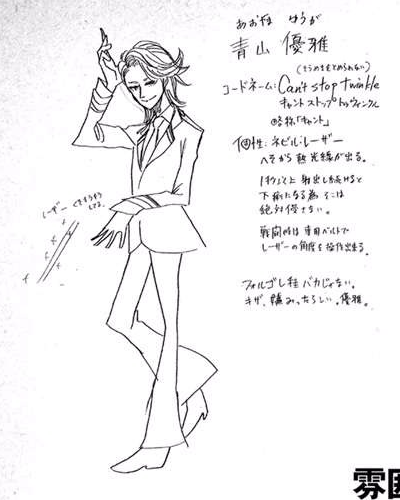 あおやま ゆうが
青山 優雅
(きらめきをとめられない)
コードネーム: Can't stop twinkle
キャント ストップ トゥウィンクル
略称「キャント」
個性: ネビル・レーザー
へそから熱光線が出る。
1秒以上射出し続けると
下痢になる為 そこは
絶対侵さない。
戦闘時は専用ベルトで
レーザーの角度を操作出来る。
レーザー
フォルゴレ程バカじゃない。
キザ、嫌みったらしい。優雅。
雰囲